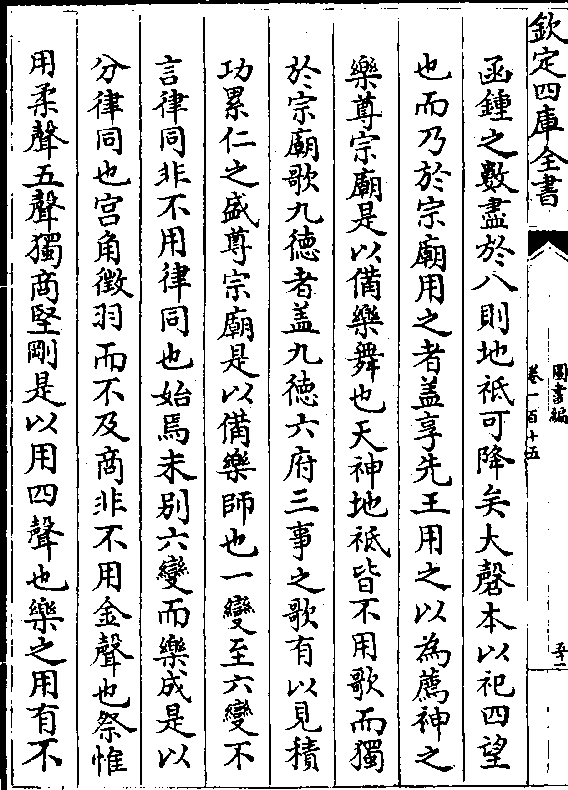 欽定四庫全書
圖書編
卷一百十五
函鍾之數盡於八則地祇可降矣大磬本以祀四望
也而乃於宗廟用之者盖享先王用之以為薦神之
樂尊宗廟是以備樂舞也天神地祇皆不用歌而獨
於宗廟歌九德者盖九德六府三事之歌有以見積
功累仁之盛尊宗廟是以備樂師也一變至六變不
言律同非不用律同也始焉未別六變而樂成是以
分律同也宫角徵羽而不及商非不用金聲也祭惟
用柔聲五聲獨商堅剛是以用四聲也樂之用有不